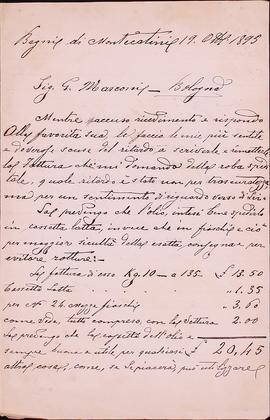 Bagni di Montecatini 19. Ott. 1895
Sig. G. Mascarin - Bologna
Mentre accuso ricevimento e rispondo
Alla favorita sua, le faccio le mie più sentite
e doverose scuse del ritardo a scriverle e rimetterle
la fattura che mi domanda della roba spedi
tale, quale ritardo è stato non per trascuratezza
ma per un sentimento di riguardo verso di Lei.
La prevengo che l'olio, intesi bene spedirlo
in cassetta latta, invece che in fiaschi e ciò
per maggior sicurtà della esatta consegna per
evitare rotture:-
La fattura d'esso Kg. 10 - a 135. £ 13.50
Cassetta Latta „ 1.35
per N° 24. mezze fiaschi „ 3.60
come vede, tutto compreso, con la vettura 2.00
La prevengo che la cassetta dell'olio è £ 20,45
sempre buona e utile per qualsiasi
altra cosa, come, se le piacerà, può utilizzare